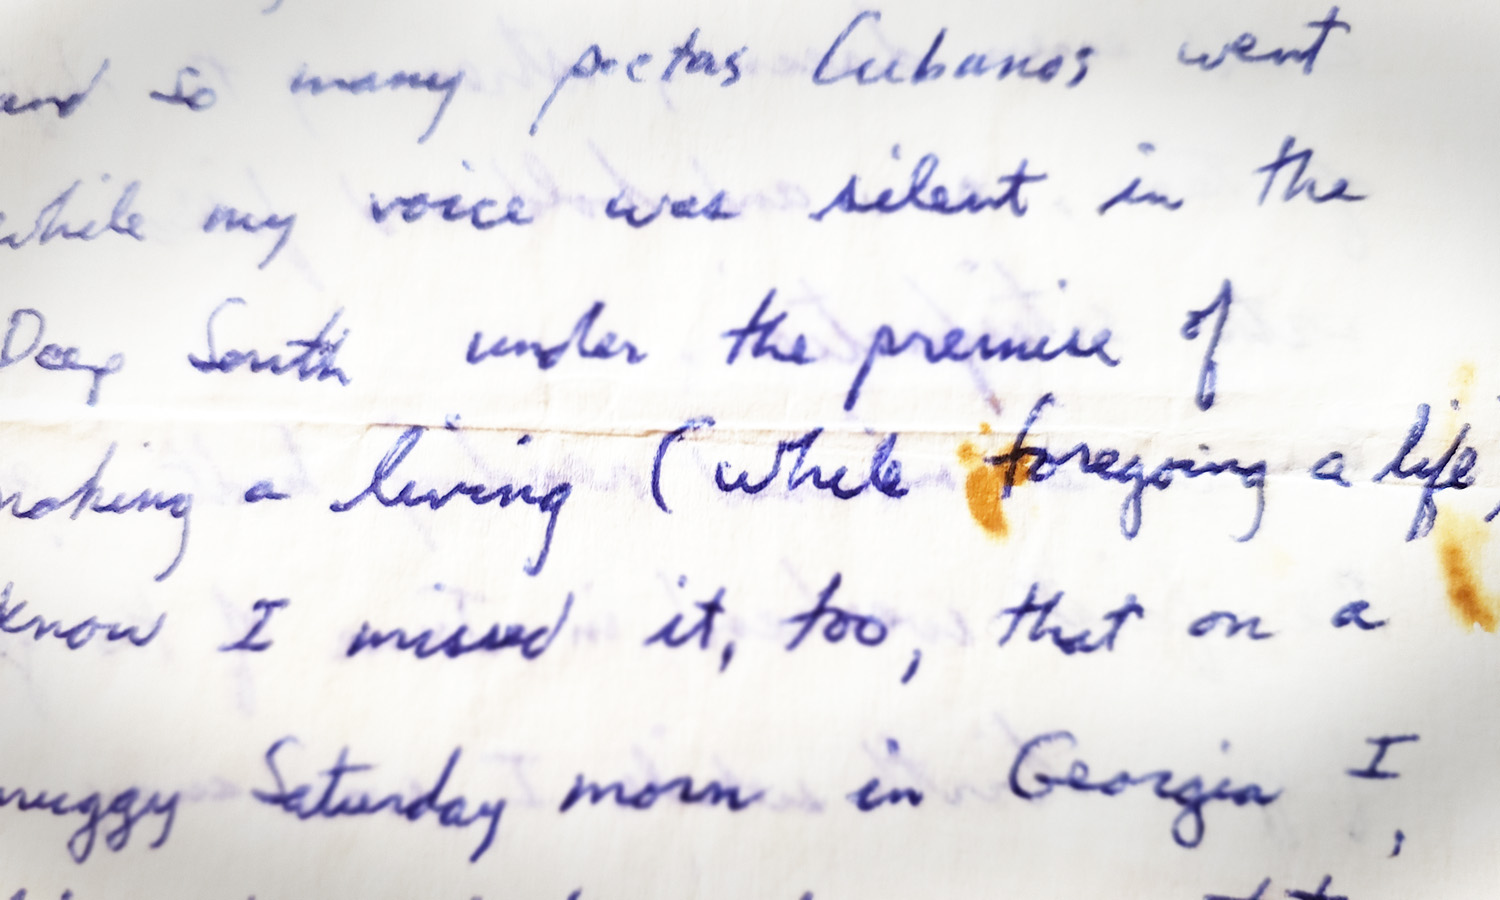 and so many poetas Cubanos went
while my voice was silent in the
Deep South under the premise of
making a living (while foregoing a life)
know I missed it, too, that on a
muggy Saturday morn in Georgia I